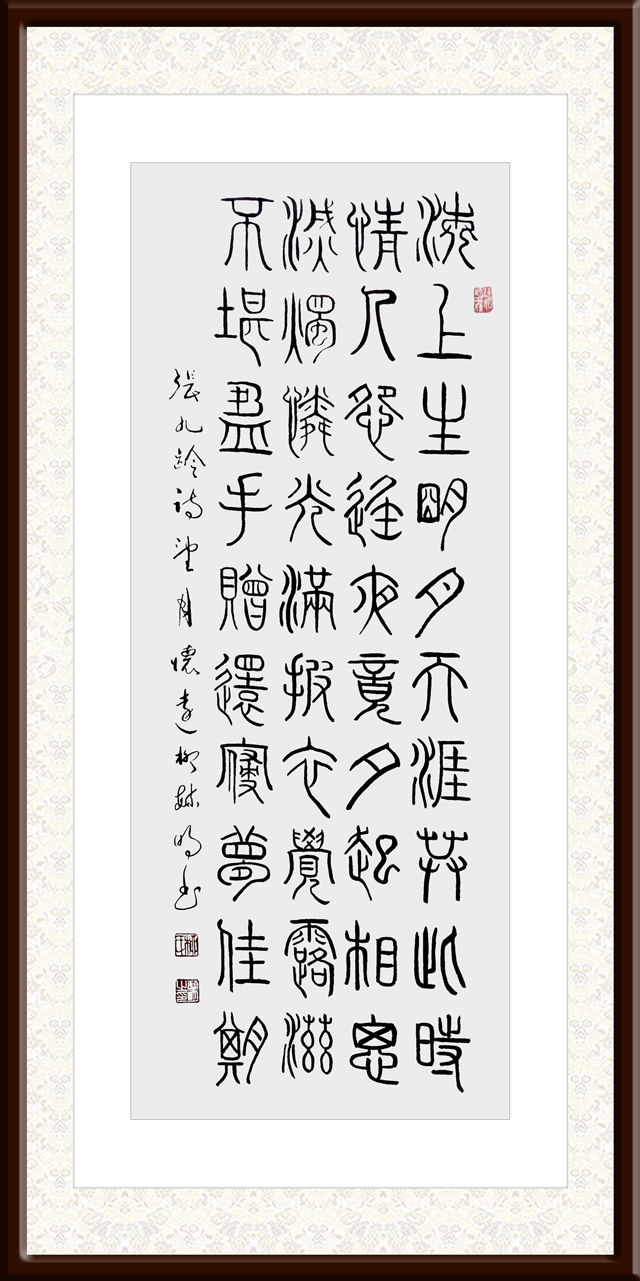 海上生明月天涯共此時
情人怨遙夜竟夕起相思
滅燭憐光滿披衣覺露滋
不堪盡手贈還寢夢佳期
張九齡詩望月懷遠柳明書